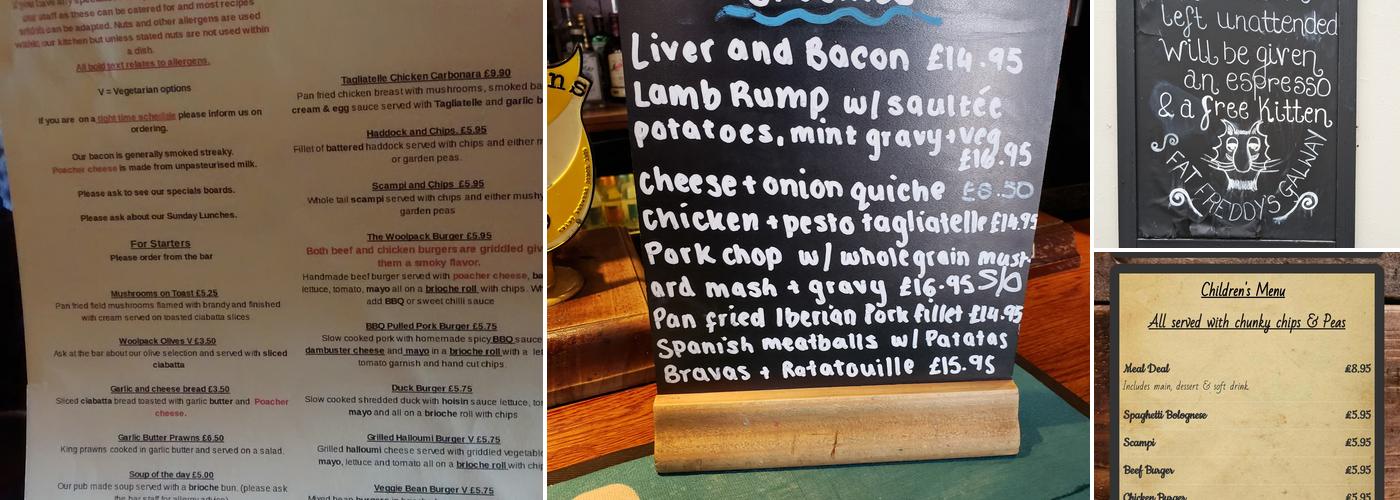 our staff as these can be catered for and most recipes
can be adapted. Nuts and other allergens are used
within our kitchen but unless stated nuts are not used within
a dish.
All bold text relates to allergens.
V = Vegetarian options
If you are on a tight time schedule please inform us on
ordering.
Our bacon is generally smoked streaky.
Poacher cheese is made from unpasteurised milk.
Please ask to see our specials boards.
Please ask about our Sunday Lunches.
For Starters
Please order from the bar
Mushrooms on Toast £5.25
Pan fried field mushrooms flamed with brandy and finished
with cream served on toasted ciabatta slices
Woolpack Olives V £3.50
Ask at the bar about our olive selection and served with sliced
ciabatta
Garlic and cheese bread £3.50
Sliced ciabatta bread toasted with garlic butter and Poacher
cheese.
Garlic Butter Prawns £6.50
King prawns cooked in garlic butter and served on a salad.
Soup of the day £5.00
Our pub made soup served with a brioche bun. (please ask
the bar staff for allergy advice)
Tagliatelle Chicken Carbonara £9.90
Pan fried chicken breast with mushrooms, smoked ba
cream & egg sauce served with Tagliatelle and garlic b
Haddock and Chips. £5.95
Fillet of battered haddock served with chips and either m
or garden peas.
Scampi and Chips £5.95
Whole tail scampi served with chips and either mushy
garden peas
The Woolpack Burger £5.95
Both beef and chicken burgers are griddled give
them a smoky flavor.
Handmade beef burger served with poacher cheese, ba
lettuce, tomato, mayo all in a brioche roll with chips. Wh
add BBQ or sweet chilli sauce
BBQ Pulled Pork Burger £5.75
Slow cooked pork with homemade spicy BBQ sauce
dambuster cheese and mayo in a brioche roll with a let
tomato garnish and hand cut chips.
Duck Burger £5.75
Slow cooked shredded duck with hoisin sauce lettuce, tom
mayo and all on a brioche roll with chips
Grilled Halloumi Burger V £5.75
Grilled halloumi cheese served with griddled vegetable
mayo, lettuce and tomato all on a brioche roll with chip
Veggie Bean Burger V £5.75
ns
Liver and Bacon £14.95
Lamb Rump w/ saultée
potatoes, mint gravy + veg
£16.95
Cheese + onion quiche £8.50
Chicken + pesto tagliatelle £14.95
Pork chop w/ wholegrain must-
ard mash + gravy £16.95 S/O
Pan fried Iberian Pork Fillet £14.95
Spanish meatballs w/ Patatas
Bravas + Ratatouille £15.95
left unattended
will be given
an espresso
& a free kitten
FAT FREDDY'S GALWAY
Children's Menu
All served with chunky chips & Peas
Meal Deal £8.95
Includes main, dessert & soft drink
Spaghetti Bolognese £5.95
Scampi £5.95
Beef Burger £5.95
Chicken Burger £5.95